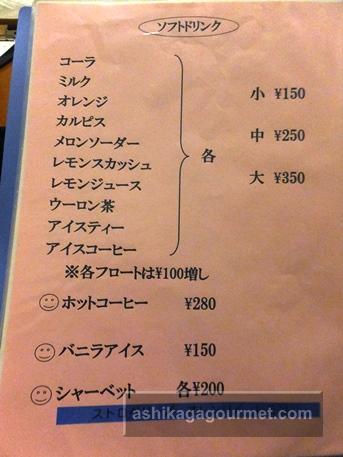 ソフトドリンク
コーラ
ミルク
オレンジ
カルピス
メロンソーダー
レモンスカッシュ
レモンジュース
ウーロン茶
アイスティー
アイスコーヒー
各
小 ¥150
中 ¥250
大 ¥350
※各フロートは¥100増し
ホットコーヒー ¥280
バニラアイス ¥150
シャーベット 各¥200
ストロ
ashikagagourmet.com